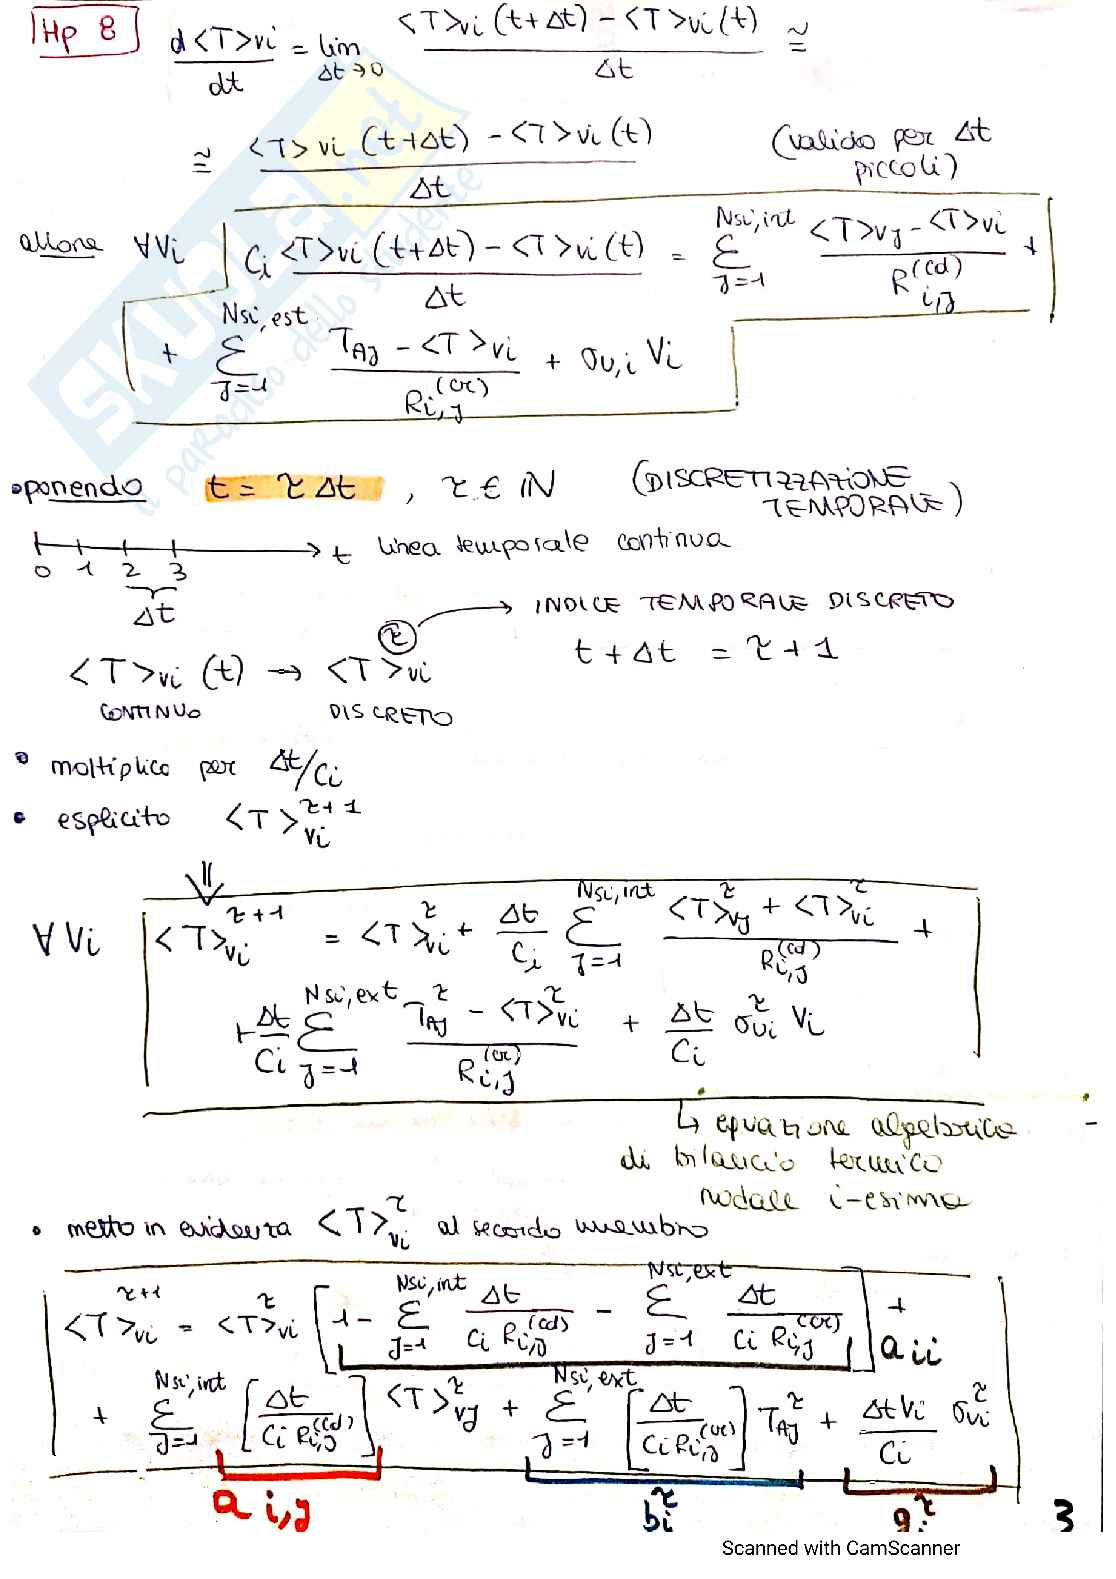 Hp 8 d<T>vi/dt = lim Δt→0 <T>vi (t+Δt) - <T>vi (t) / Δt ≅
≅ <T>vi (t+Δt) - <T>vi (t) / Δt (valido per Δt piccoli)
allora ∀Vi Ci <T>vi (t+Δt) - <T>vi (t) / Δt = Σ J=1 Nsi,int <T>vJ - <T>vi / R i,J (cd) +
+ Σ J=1 Nsi,est TAJ - <T>vi / Ri,J (cv) + σv,i Vi
• ponendo t = τ Δt , τ ∈ IN (DISCRETIZZAZIONE TEMPORALE)
t linea temporale continua
0 1 2 3
Δt
τ → INDICE TEMPORALE DISCRETO
<T>vi (t) → <T>vi t + Δt = τ + 1
CONTINUO DISCRETO
• moltiplico per Δt/Ci
• esplicito <T>Vi τ+1
⇓
∀ Vi <T>vi τ+1 = <T>vi τ + Δt/Ci Σ J=1 Nsi,int <T>vJ τ + <T>vi τ / Ri,J (cd) +
+ Δt/Ci Σ J=1 Nsi,ext TAJ τ - <T>vi τ / Ri,J (cv) + Δt/Ci σvi τ Vi
↳ equazione algebrica
di bilancio termico
nodale i-esimo
• metto in evidenza <T>vi τ al secondo membro
<T>vi τ+1 = <T>vi τ [1 - Σ J=1 Nsi,int Δt / Ci Ri,J (cd) - Σ J=1 Nsi,ext Δt / Ci Ri,J (cv)] + a ii
+ Σ J=1 Nsi,int [Δt / Ci Ri,J (cd)] <T>vJ τ + Σ J=1 Nsi,ext [Δt / Ci Ri,J (cv)] TAJ τ + Δt Vi / Ci σvi τ
a i,J bi τ gi τ
3
Scanned with CamScanner
SKUOLA.net
il paradiso dello studente